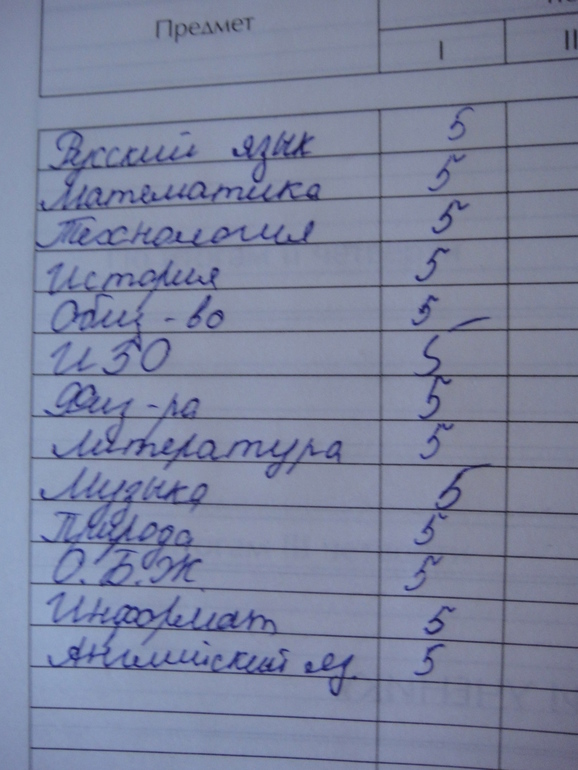 Предмет
I II
Русский язык 5
Математика 5
Технология 5
История 5
Общ-во 5
ИЗО 5
Физ-ра 5
Литература 5
Музыка 5
Природа 5
О.Б.Ж 5
Информат 5
Английский яз. 5